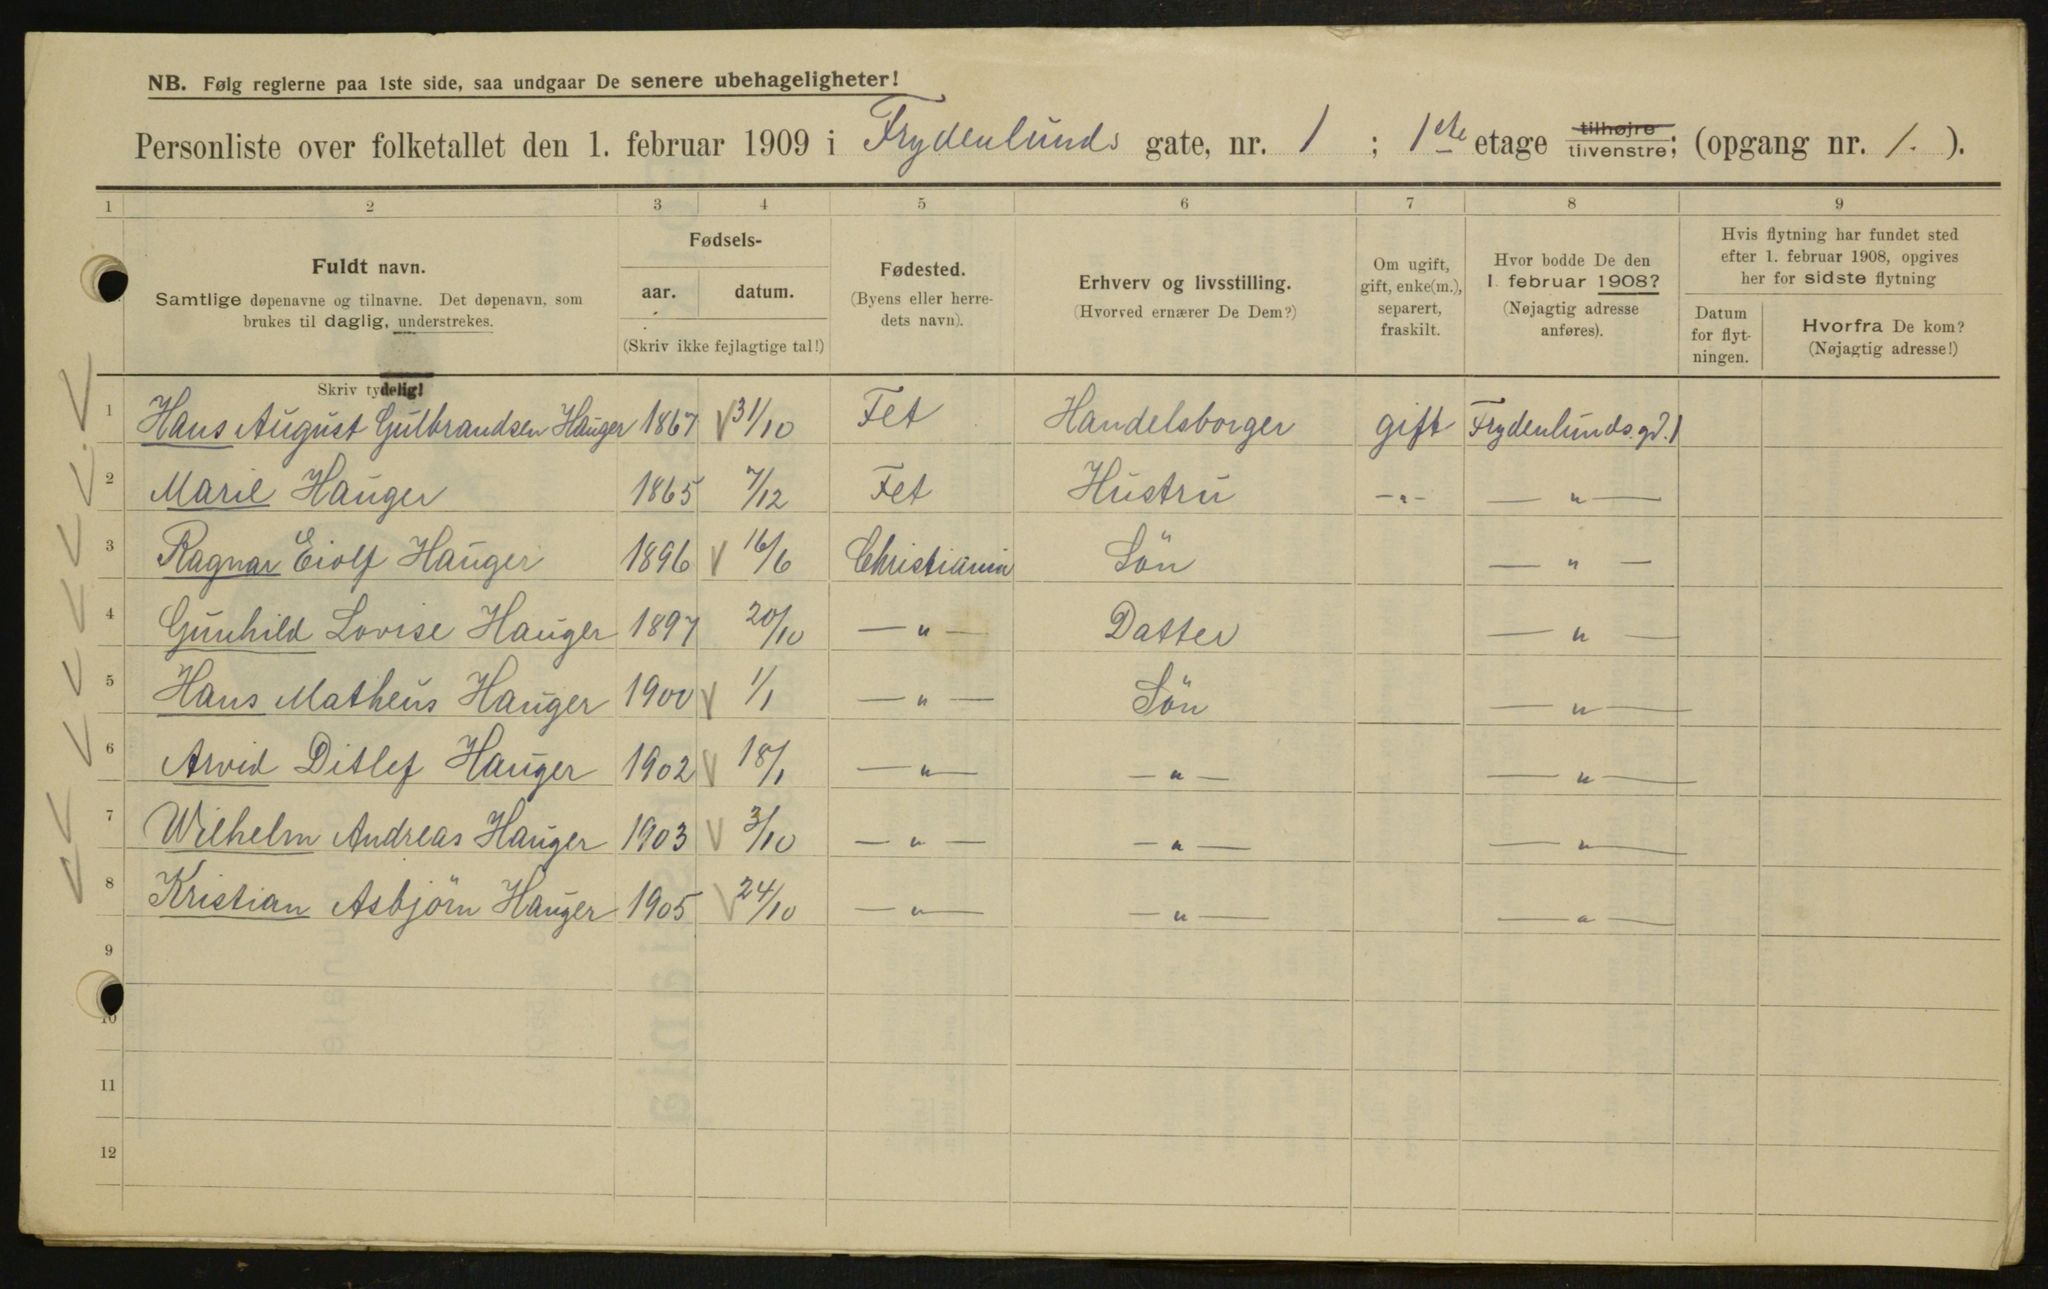 NB. Følg reglerne paa 1ste side, saa undgaar De senere ubehageligheter!
Personliste over folketallet den 1. februar 1909 i Frydenlunds gate, nr. 1 ; 1ste etage tilhøjre tilvenstre; (opgang nr. 1. ).
1 2 3 4 5 6 7 8 9
Fuldt navn.
Samtlige døpenavne og tilnavne. Det døpenavn, som
brukes til daglig, understrekes.
Skriv tydelig!
Fødsels-
aar. datum.
(Skriv ikke fejlagtige tal!)
Fødested.
(Byens eller herre-
dets navn).
Erhverv og livsstilling.
(Hvorved ernærer De Dem?)
Om ugift,
gift, enke(m.),
separert,
fraskilt.
Hvor bodde De den
1. februar 1908?
(Nøjagtig adresse
anføres).
Hvis flytning har fundet sted
efter 1. februar 1908, opgives
her for sidste flytning
Datum
for flyt-
ningen.
Hvorfra De kom?
(Nøjagtig adresse!)
1 Hans August Gulbrandsen Hauger 1867 31/10 Fet Handelsborger gift Frydenlunds.gd.1
2 Marie Hauger 1865 7/12 Fet Hustru -"- — " —
3 Ragnar Eiolf Hauger 1896 16/6 Christiania Sön — " —
4 Gunhild Lovise Hauger 1897 20/10 — " — Datter — " —
5 Hans Matheus Hauger 1900 1/1 — " — Sön — " —
6 Arvid Ditlef Hauger 1902 18/1 — " — — " — — " —
7 Wilhelm Andreas Hauger 1903 3/10 — " — — " — — " —
8 Kristian Asbjörn Hauger 1905 24/10 — " — — " — — " —
9
10
11
12